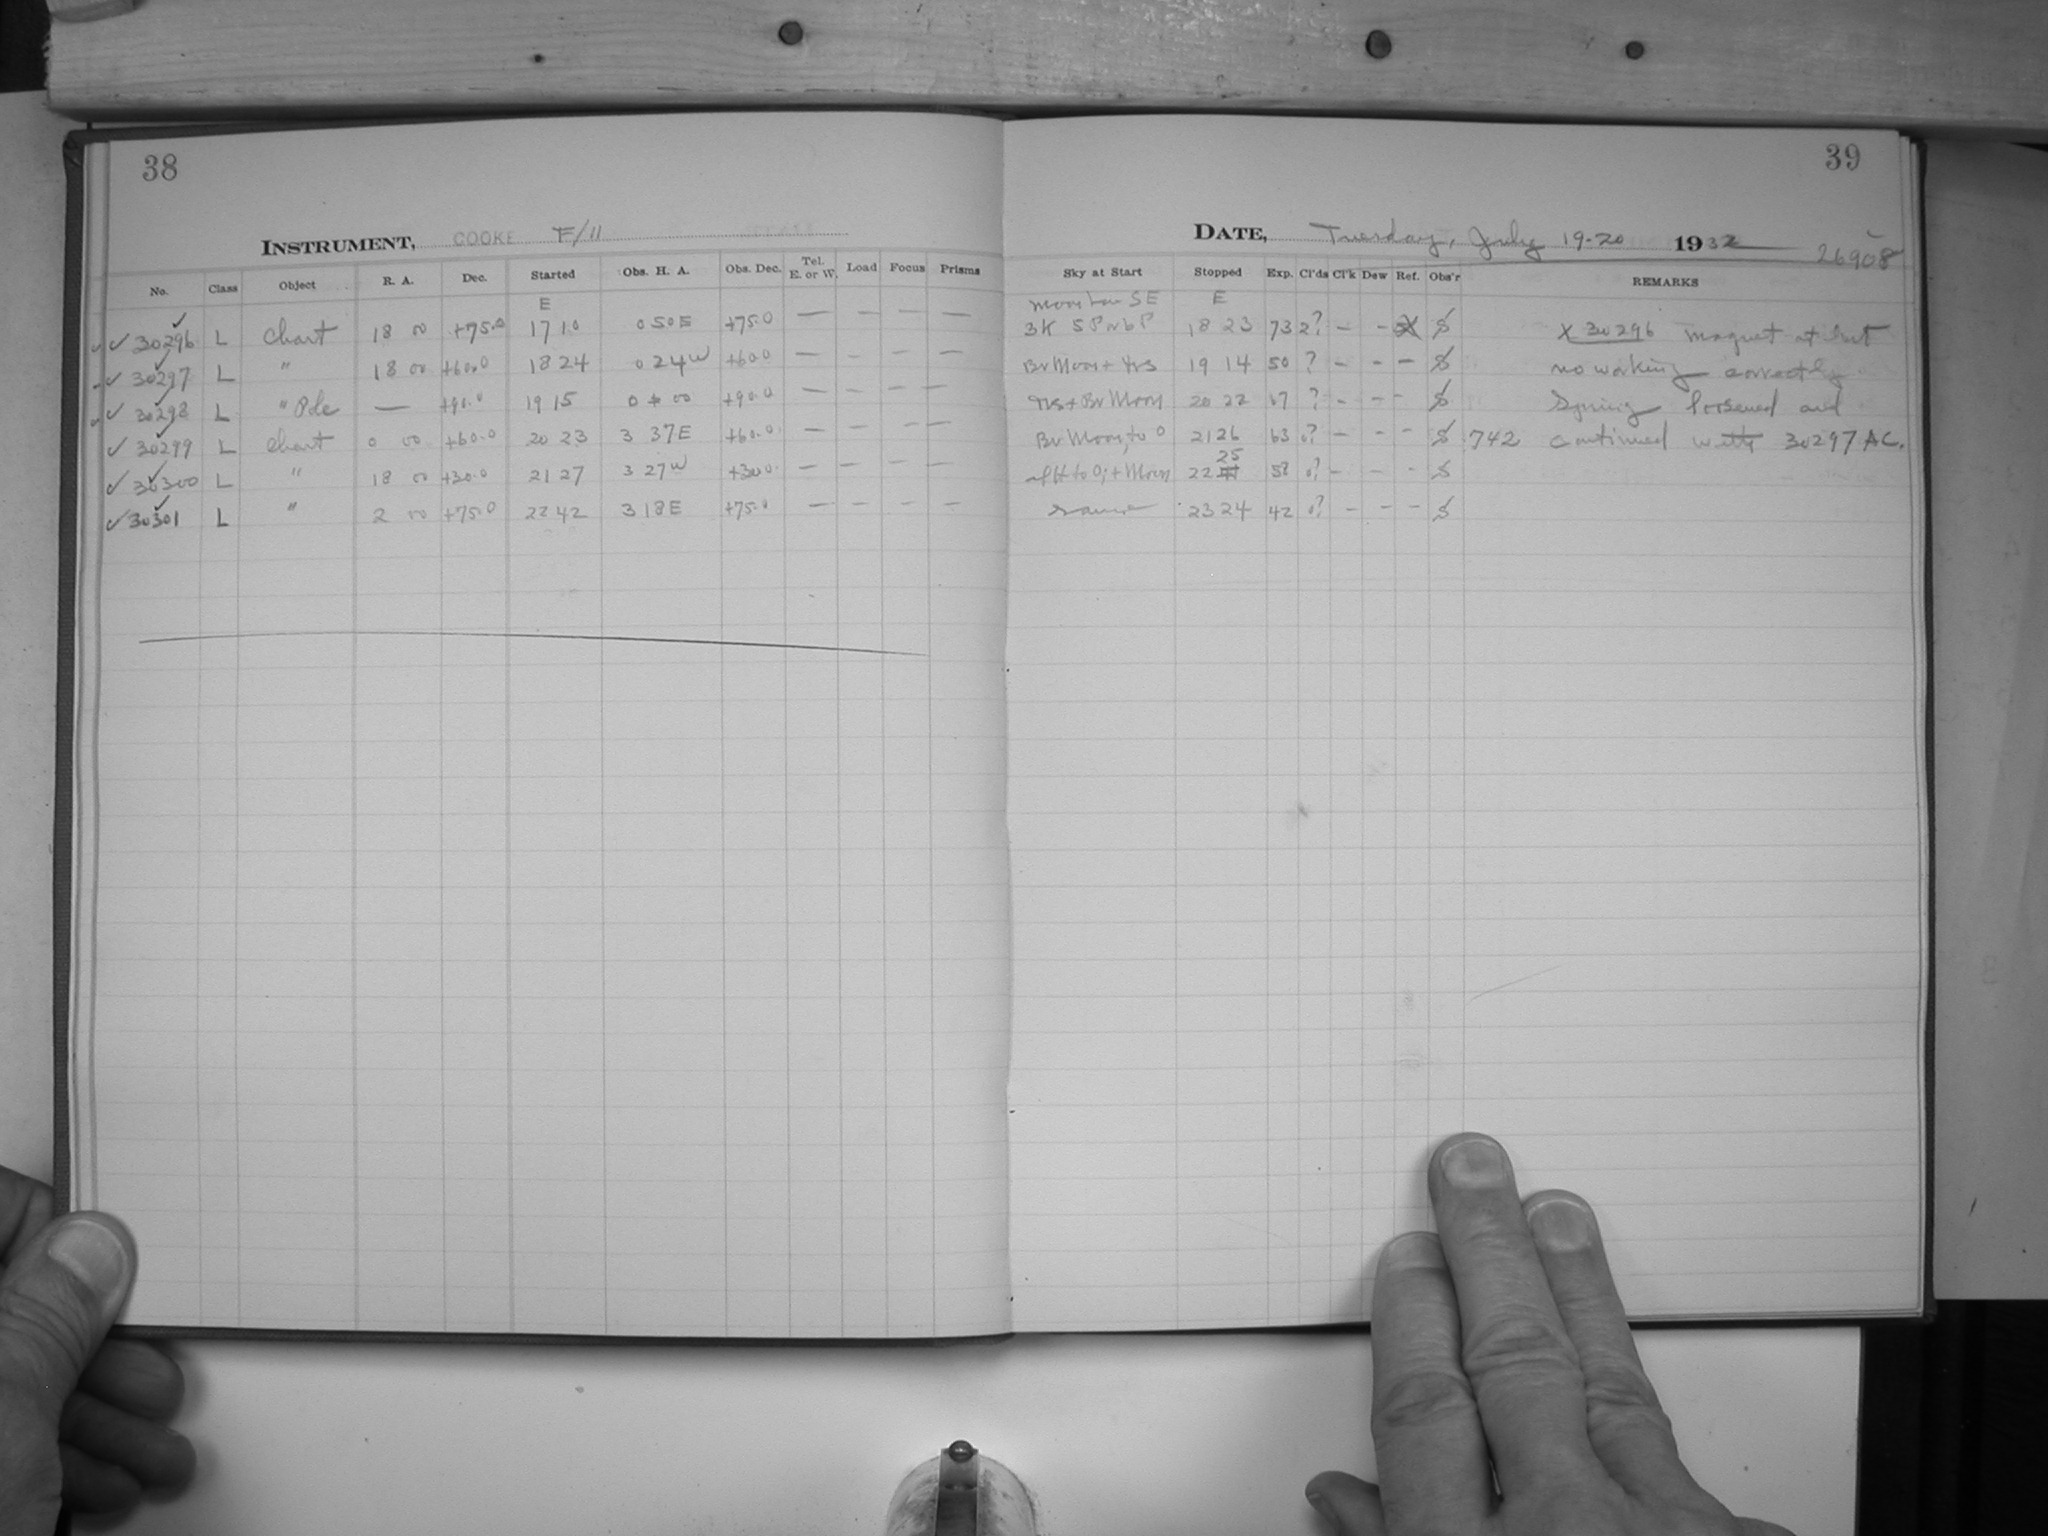 38
INSTRUMENT, COOKE F/11
No. Class Object R. A. Dec. Started Obs. H. A. Obs. Dec. Tel. E. or W. Load Focus Prisms
E
✓ 30296 L Chart 18 00 +75.0 17 10 0 50 E +75.0 — — — —
✓ 30297 L " 18 00 +60.0 18 24 0 24 W +60.0 — — — —
✓ 30298 L " Pole — +90.0 19 15 0 00 +90.0 — — — —
✓ 30299 L Chart 0 00 +60.0 20 23 3 37 E +60.0 — — — —
✓ 30300 L " 18 00 +30.0 21 27 3 27 W +30.0 — — — —
✓ 30301 L " 2 00 +75.0 22 42 3 18 E +75.0 — — — —
39
DATE, Tuesday, July 19-20 1932
26908
Sky at Start Stopped Exp. Cl'ds Cl'k Dew Ref. Obs'r REMARKS
Moon low SE E
18 23 73 2? — — X 30296 magnet at but
Br Moon + 19 14 50 ? — — — no working correctly
+ Br Moon 20 22 67 ? — — — Spring loosened and
Br Moon, to 0 21 26 63 0? — — — 742 continued with 30297 AC.
to 0; + Moon 22 25 58 0? — — —
Same 23 24 42 0? — — —